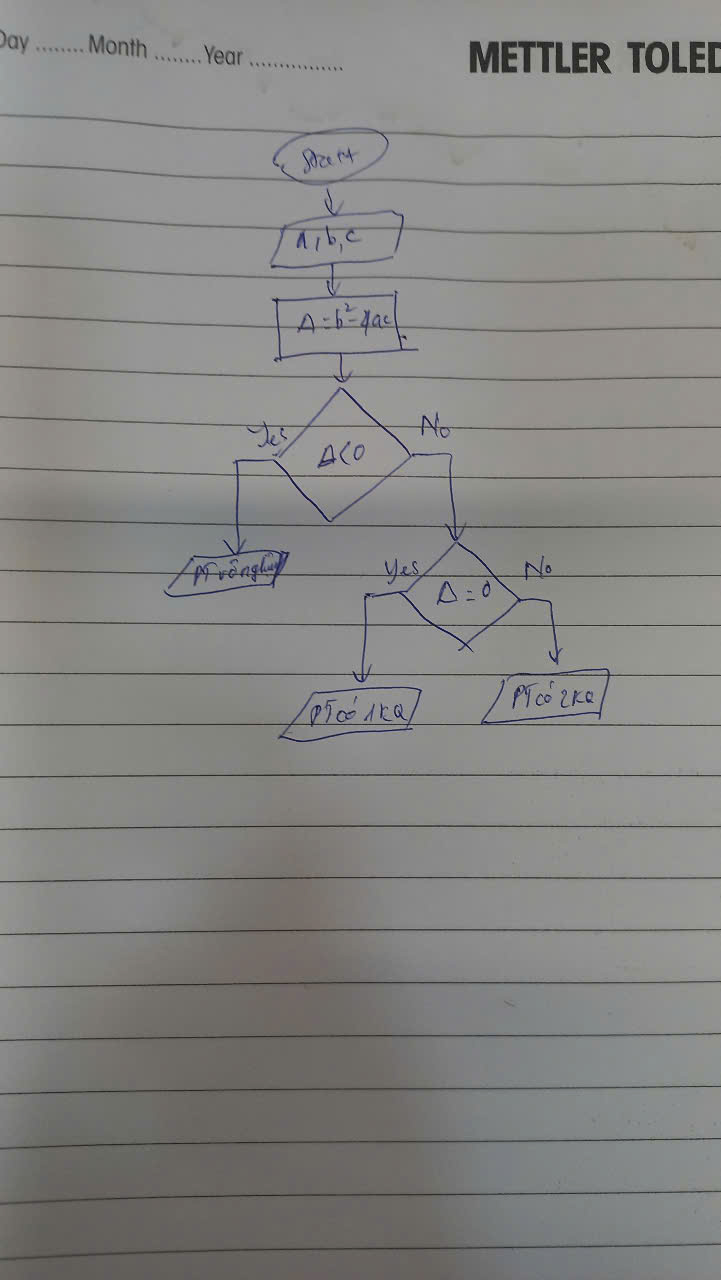 Day ........ Month ........ Year ................
METTLER TOLED
Start
a, b, c
Δ = b² - 4ac
Δ < 0
Yes
No
PT vô nghiệm
Δ = 0
Yes
No
PT có 1 KQ
PT có 2 KQ